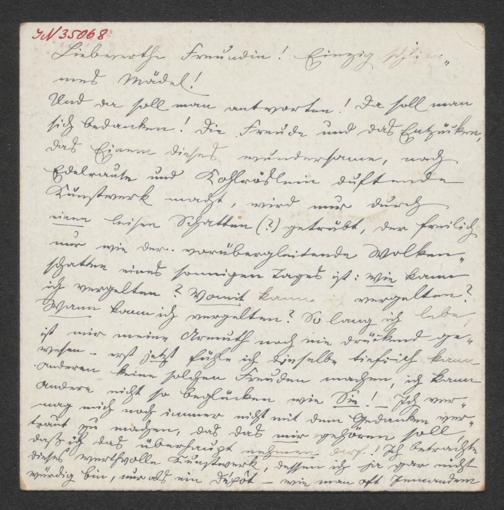 IN 35068
Liebwerthe Freundin! Einzig schlim-
mes Mädel!
Und da soll man antworten! Da soll man
sich bedanken! Die Freude und das Entzücken,
das Einem dieses wundersame, nach
Edelraute und Kohlröslein duftende
Kunstwerk macht, wird nur durch
einen leisen Schatten (?) getrübt, der freilich
nur wie der vorübergleitende Wolken-
schatten eines sonnigen Tages ist: wie kann
ich vergelten? Womit kann vergelten?
Wann kann ich vergelten? So lang ich lebe,
ist mir meine Armuth noch nie drückend ge-
wesen - erst jetzt fühle ich dieselbe tief: ich kann
anderen keine solchen Freuden machen, ich kann
andere nicht so beglücken wie Sie! Ich ver-
mag mich noch immer nicht mit dem Gedanken ver-
traut zu machen, daß das mir gehören soll,
daß ich das überhaupt nehmen darf! Ich betrachte
dieses werthvolle Kunstwerk, dessen ich ja gar nicht
würdig bin, nur als ein Depôt - wie man oft Jemandem